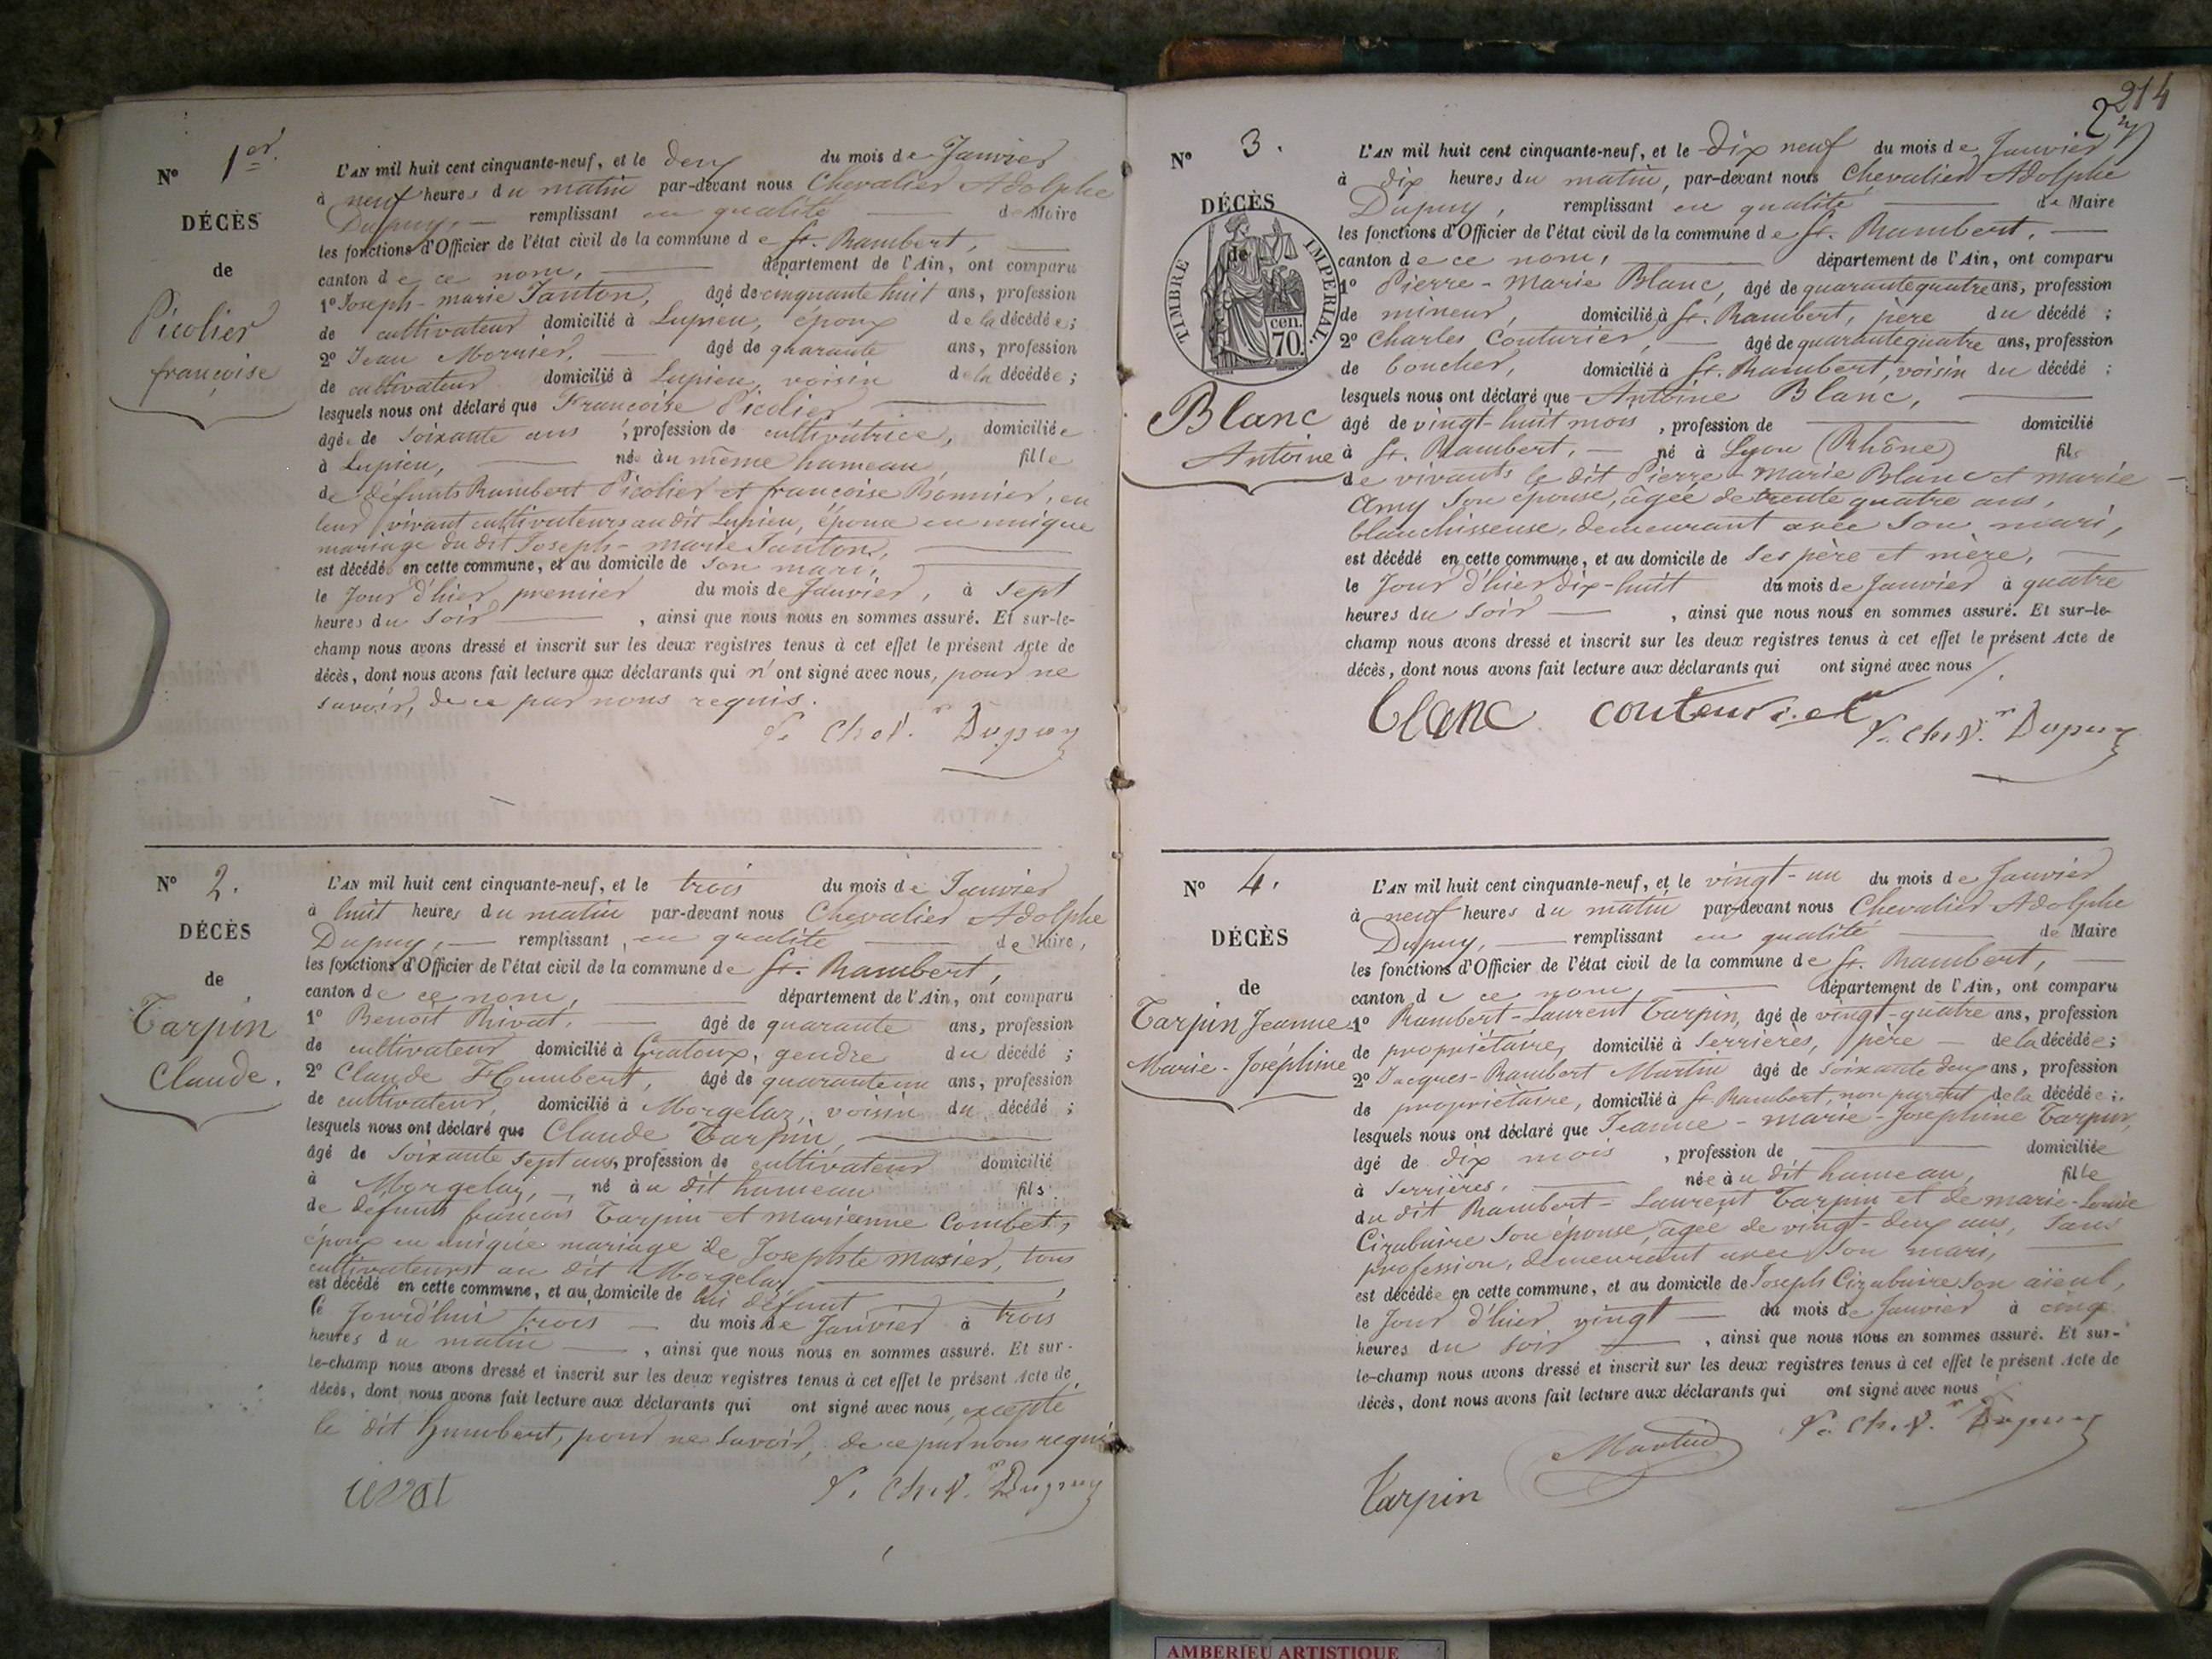 N° 1er.
DÉCÈS
de
Picolier
françoise
L'AN mil huit cent cinquante-neuf, et le deux du mois de Janvier
à neuf heures du matin par-devant nous Chevalier Adolphe
Dupuy, remplissant en qualité de Maire
les fonctions d'Officier de l'état civil de la commune de St. Rambert,
canton de ce nom, département de l'Ain, ont comparu
1° Joseph-marie Tanton, âgé de cinquante huit ans, profession
de cultivateur domicilié à Lupieu, époux de la décédée;
2° Jean Mornier, âgé de quarante ans, profession
de cultivateur domicilié à Lupieu, voisin de la décédée;
lesquels nous ont déclaré que Françoise Picolier
âgée de soixante ans, profession de cultivatrice, domiciliée
à Lupieu, née au même hameau, fille
de défunts Rambert Picolier et françoise Bonnier, en
leur vivant cultivateurs au dit Lupieu, épouse en unique
mariage du dit Joseph-marie Tanton,
est décédée en cette commune, et au domicile de son mari,
le Jour d'hier premier du mois de Janvier, à sept
heures du soir, ainsi que nous nous en sommes assuré. Et sur-le-
champ nous avons dressé et inscrit sur les deux registres tenus à cet effet le présent Acte de
décès, dont nous avons fait lecture aux déclarants qui n'ont signé avec nous, pour ne
savoir, de ce par nous requis.
Dupuy
N° 2.
DÉCÈS
de
Tarpin
Claude.
L'AN mil huit cent cinquante-neuf, et le trois du mois de Janvier
à huit heures du matin par-devant nous Chevalier Adolphe
Dupuy, remplissant en qualité de Maire,
les fonctions d'Officier de l'état civil de la commune de St. Rambert,
canton de ce nom, département de l'Ain, ont comparu
1° Benoit Rivat, âgé de quarante ans, profession
de cultivateur domicilié à Gratoux, gendre du décédé;
2° Claude Humbert, âgé de quarante un ans, profession
de cultivateur, domicilié à Morgelaz, voisin du décédé;
lesquels nous ont déclaré que Claude Tarpin,
âgé de soixante sept ans, profession de cultivateur domicilié
à Morgelaz, né au dit hameau fils
de défunts françois Tarpin et marianne Combet,
époux en unique mariage de Josephte masier, tous
cultivateurs au dit Morgelaz
est décédé en cette commune, et au domicile de lui défunt
le Jourd'hui trois du mois de Janvier à trois
heures du matin, ainsi que nous nous en sommes assuré. Et sur-
le-champ nous avons dressé et inscrit sur les deux registres tenus à cet effet le présent Acte de
décès, dont nous avons fait lecture aux déclarants qui ont signé avec nous, excepté
le dit humbert, pour ne savoir, de ce par nous requis
Dupuy
214
N° 3.
DÉCÈS
de
TIMBRE IMPÉRIAL.
70 cen.
Blanc
Antoine
L'AN mil huit cent cinquante-neuf, et le dix neuf du mois de Janvier
à dix heures du matin, par-devant nous Chevalier Adolphe
Dupuy, remplissant en qualité de Maire
les fonctions d'Officier de l'état civil de la commune de St. Rambert,
canton de ce nom, département de l'Ain, ont comparu
1° Pierre-Marie Blanc, âgé de quarante quatre ans, profession
de mineur, domicilié à St. Rambert, père du décédé;
2° Charles Couturier, âgé de quarante quatre ans, profession
de boucher, domicilié à St. Rambert, voisin du décédé;
lesquels nous ont déclaré que Antoine Blanc,
âgé de vingt-huit mois, profession de domicilié
à St. Rambert, né à Lyon (Rhône) fils
de vivants le dit Pierre-Marie Blanc et marie
Amy son épouse, âgée de trente quatre ans,
blanchisseuse, demeurant avec son mari,
est décédé en cette commune, et au domicile de ses père et mère,
le Jour d'hier dix-huit du mois de Janvier à quatre
heures du soir, ainsi que nous nous en sommes assuré. Et sur-le-
champ nous avons dressé et inscrit sur les deux registres tenus à cet effet le présent Acte de
décès, dont nous avons fait lecture aux déclarants qui ont signé avec nous
blanc couturier Dupuy
N° 4.
DÉCÈS
de
Tarpin Jeanne
Marie-Joséphine
L'AN mil huit cent cinquante-neuf, et le vingt-un du mois de Janvier
à neuf heures du matin par-devant nous Chevalier Adolphe
Dupuy, remplissant en qualité de Maire
les fonctions d'Officier de l'état civil de la commune de St. Rambert,
canton de ce nom, département de l'Ain, ont comparu
1° Rambert-Laurent Tarpin, âgé de vingt-quatre ans, profession
de propriétaire, domicilié à Serrières, père de la décédée;
2° Jacques-Rambert Martin âgé de soixante deux ans, profession
de propriétaire, domicilié à St. Rambert, non parent de la décédée;
lesquels nous ont déclaré que Jeanne-marie-Josephine Tarpin,
âgé de dix mois, profession de domiciliée
à Serrières, née au dit hameau, fille
du dit Rambert-Laurent Tarpin et de marie-Louise
Cizabuire son épouse, âgée de vingt-deux ans, sans
profession, demeurant avec son mari,
est décédée en cette commune, et au domicile de Joseph Cizabuire son aïeul,
le Jour d'hier vingt du mois de Janvier à cinq
heures du soir, ainsi que nous nous en sommes assuré. Et sur-
le-champ nous avons dressé et inscrit sur les deux registres tenus à cet effet le présent Acte de
décès, dont nous avons fait lecture aux déclarants qui ont signé avec nous
Martin Dupuy
Tarpin
AMBERIEU ARTISTIQUE